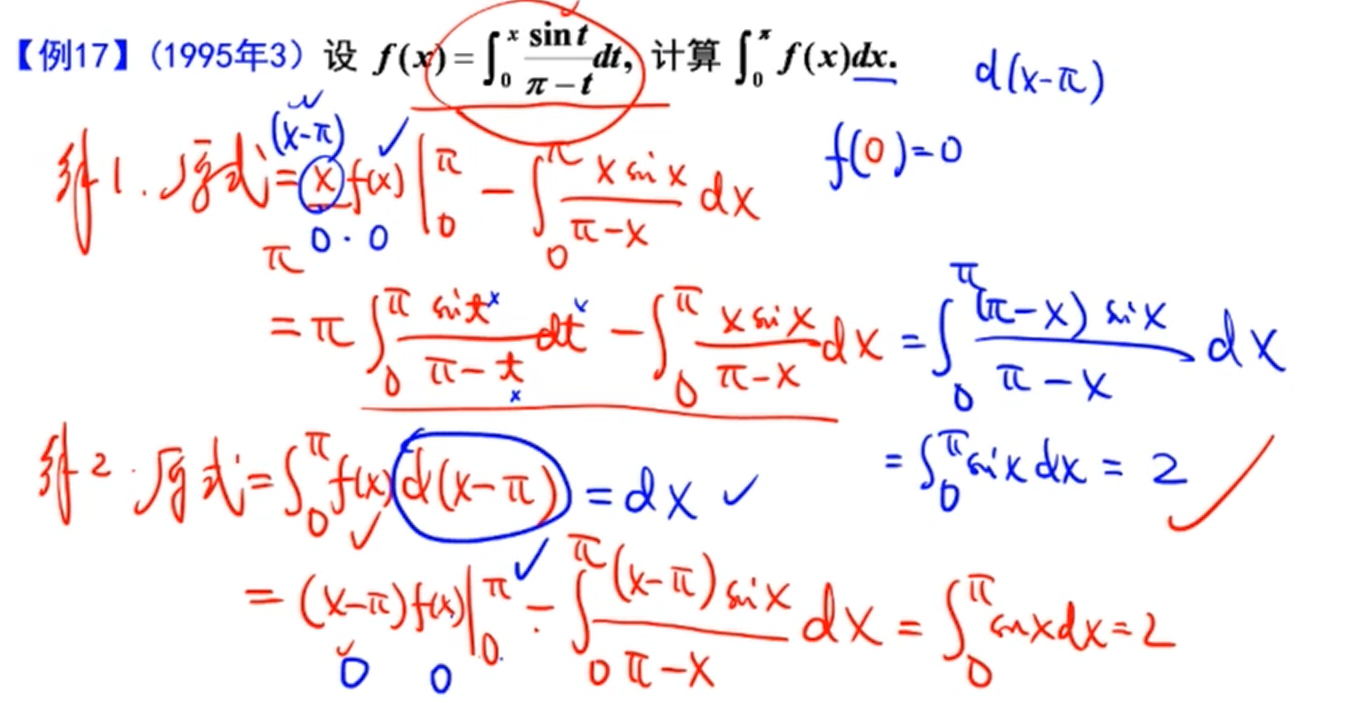 【例17】(1995年3) 设 f(x)=∫₀ˣ sin t/(π−t) dt, 计算 ∫₀^π f(x)dx. d(x-π)
(x-π) f(0)=0
解1. 原式= x f(x) |₀^π − ∫₀^π x sin x/(π-x) dx
π 0·0
= π ∫₀^π sin t/(π-t) dt − ∫₀^π x sin x/(π-x) dx = ∫₀^π (π-x) sin x/(π-x) dx
x x x
= ∫₀^π sin x dx = 2
解2. 原式= ∫₀^π f(x) d(x-π) = dx ✓
= (x-π) f(x) |₀^π − ∫₀^π (x-π) sin x/(π-x) dx = ∫₀^π sin x dx = 2
0 0